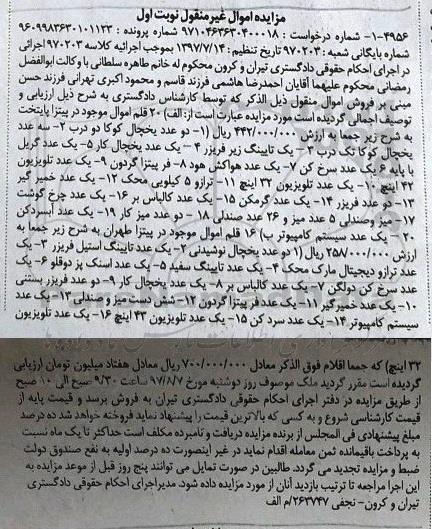 مزایده اموال غیر منقول نوبت اول
۴۹۵۶-۱- شماره درخواست : ۹۷۱۰۴۶۳۶۳۰۴۰۰۰۱۸ شماره پرونده : ۹۶۰۹۹۸۳۶۳۰۱۰۱۲۳۳
شماره بایگانی شعبه: ۹۷۰۲۰۳ تاریخ تنظیم: ۱۳۹۷/۷/۱۴ بموجب اجرائیه کلاسه ۹۷۰۲۰۳ اجرائی
در اجرای احکام حقوقی دادگستری تیران و کرون محکوم له خانم طاهره سلطانی با وکالت ابوالفضل
رمضانی محکوم علیهما آقایان احمدرضا هاشمی فرزند قاسم و محمود اکبری تهرانی فرزند حسن
مبنی بر فروش اموال منقول ذیل الذکر که توسط کارشناس دادگستری به شرح ذیل ارزیابی و
توصیف اجمالی گردیده است مورد مزایده عبارت است از: الف) ۲۰ قلم اموال موجود در پیتزا پایتخت
به شرح زیر جمعا به ارزش ۴۴۲/۰۰۰/۰۰۰ ریال (۱- دو عدد یخچال کوکا دو درب ۲- سه عدد
یخچال کوکا تک درب ۳- یک تاپینگ زیر فریزر ۴- یک عدد یخچال کار ۵- یک عدد گریل
با پایه ۶ یک عدد سرخ کن ۷- یک عدد هواکش هود ۸- فر پیتزا گردون ۹- یک عدد تلویزیون
۴۲ اینچ ۱۰- یک عدد تلویزیون ۳۲ اینچ ۱۱- ترازو ۵ کیلویی محک ۱۲- یک عدد خمیر گیر
۱۳- دو عدد فریزر ۱۴- یک عدد گرمکن ۱۵- یک عدد کالباس بر ۱۶- یک عدد چرخ گوشت
۱۷- میز وصندلی ۵ عدد میز و ۲۶ عدد صندلی ۱۸- دو عدد میز کار ۱۹- یک عدد آبسردکن
۲۰- یک عدد سیستم کامپیوتر ب) ۱۶ قلم اموال موجود در پیتزا طهران به شرح زیر جمعا به
ارزش ۲۵۸/۰۰۰/۰۰۰ ریال (۱- دو عدد یخچال نوشیدنی ۲- یک عدد تاپینگ استیل فریزر ۳- یک
عدد ترازو دیجیتال مارک محک ۴- یک عدد تاپینگ سفید ۵- یک عدد اسنک پز دوقلو ۶- یک
عدد سرخ کن دولگن ۷- یک عدد کالباس بر ۸- یک عدد یخچال کار ۹- دو عدد فریزر بستنی
۱۰- یک عدد خمیر گیر ۱۱- یک عدد فر پیتزا گردون ۱۲- شش دست میز و صندلی ۱۳- یک عدد
سیستم کامپیوتر ۱۴- یک عدد سرد کن ۱۵- یک عدد تلویزیون ۴۳ اینچ ۱۶- یک عدد تلویزیون
۳۲ اینچ) که جمعا اقلام فوق الذکر معادل ۷۰۰/۰۰۰/۰۰۰ ریال معادل هفتاد میلیون تومان ارزیابی
گردیده است مقرر گردید ملک موصوف روز دوشنبه مورخ ۹۷/۸/۷ ساعت ۹/۳۰ صبح الی ۱۰ صبح
از طریق مزایده در دفتر اجرای احکام حقوقی دادگستری تیران به فروش برسد و قیمت پایه از
قیمت کارشناسی شروع و به کسی که بالاترین قیمت را پیشنهاد نماید فروخته خواهد شد ده درصد
مبلغ پیشنهادی فی المجلس از برنده مزایده دریافت و نامبرده مکلف است حداکثر تا یک ماه نسبت
به پرداخت باقیمانده ثمن معامله اقدام نماید در غیر اینصورت ده درصد اولیه به نفع صندوق دولت
ضبط و مزایده تجدید می گردد. طالبین در صورت تمایل می توانند پنج روز قبل از موعد مزایده به
این اجرا مراجعه تا ترتیب بازدید آنان از مورد مزایده داده شود. مدیراجرای احکام حقوقی دادگستری
تیران و کرون - نجفی ۲۶۳۷۴۷/م الف